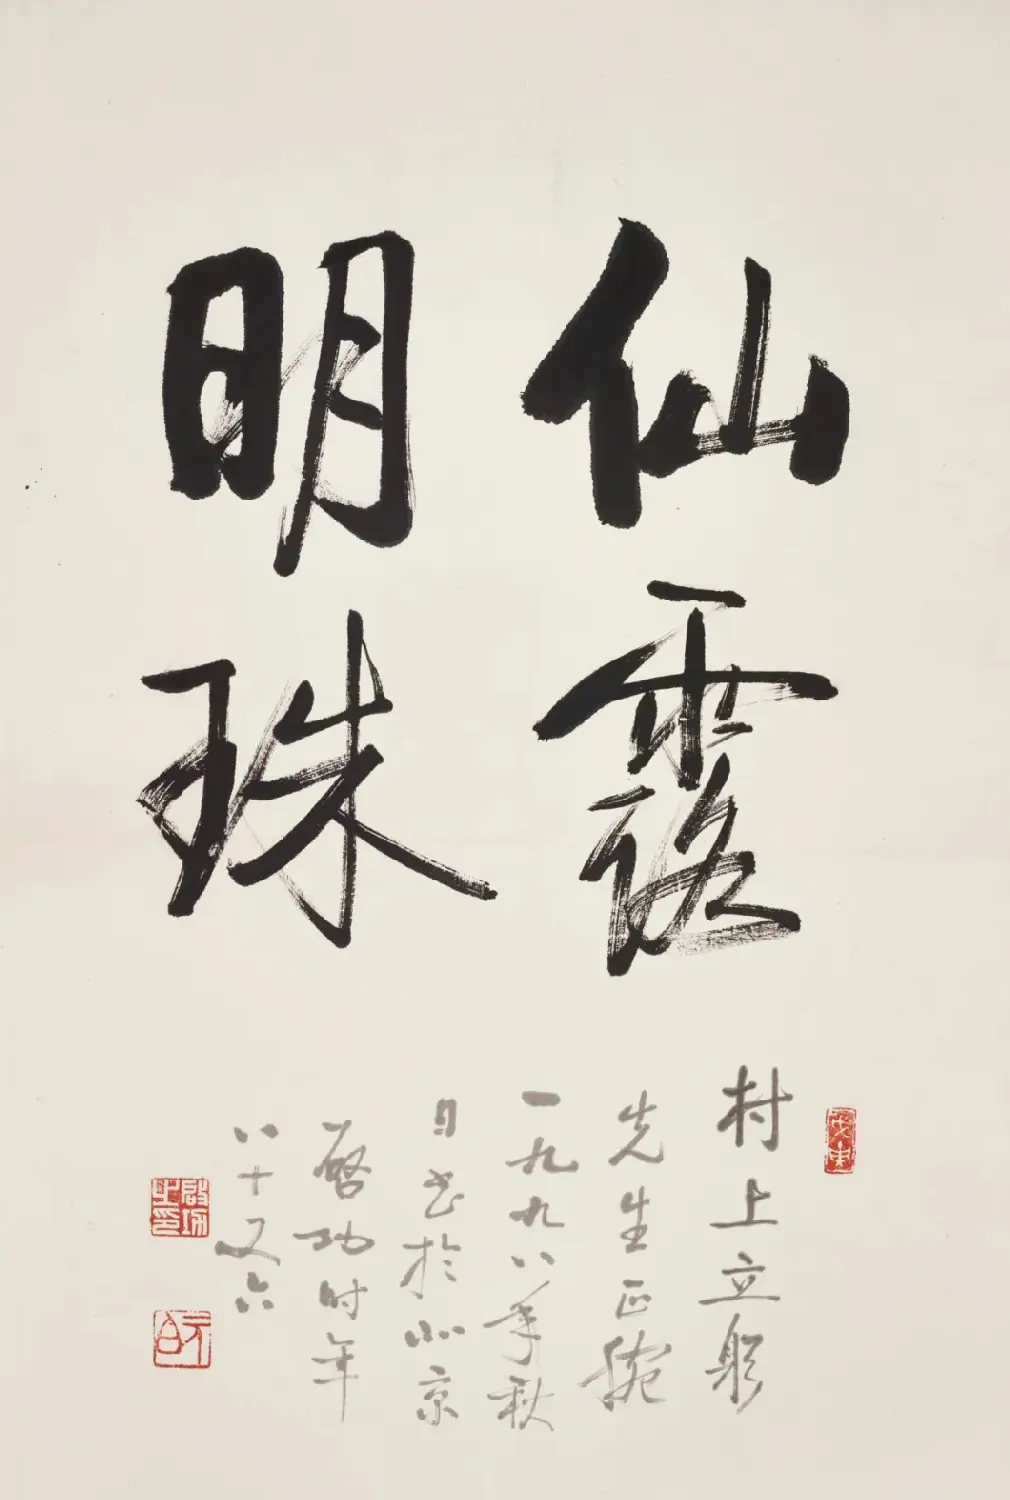 仙露
明珠
村上立躬
先生正腕
一九九八年秋
日书於北京
启功时年
八十又六
启功之印
元白